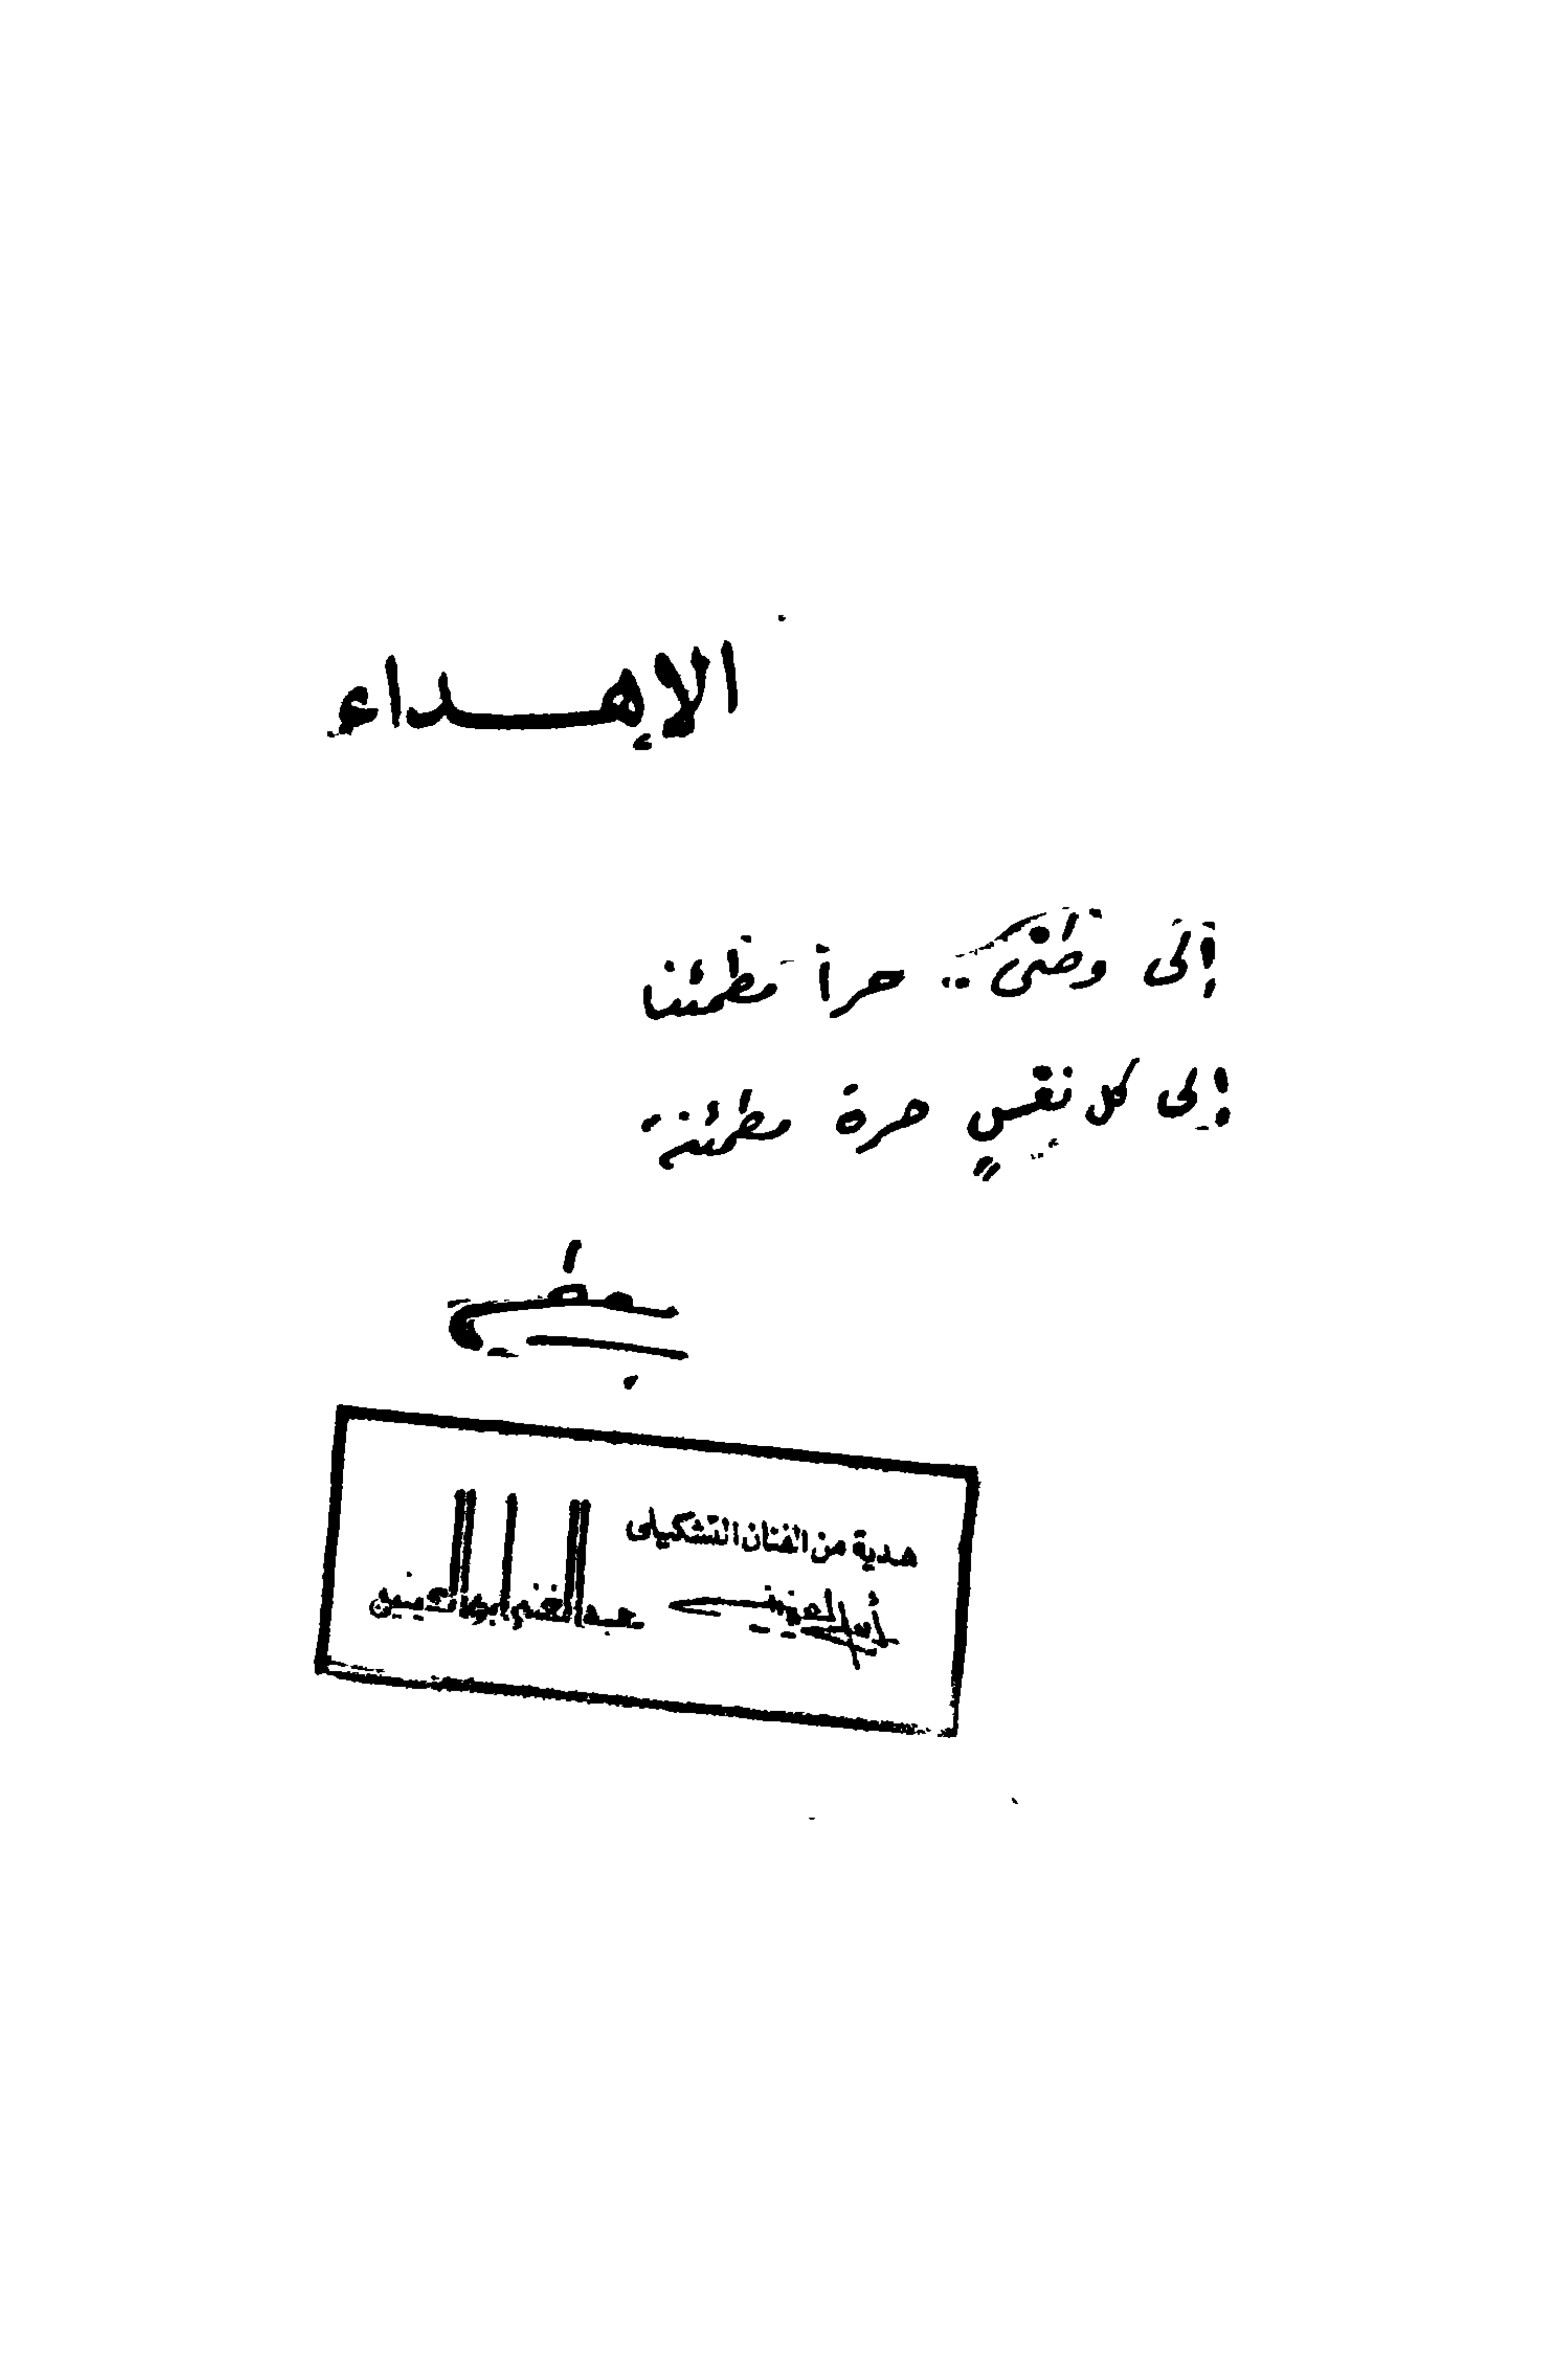 الإهداء
إلى وطني .. حراً مطمئنا
إلى كل نفسٍ حرة مطمئنة
هدية من الفنان التشكيلى
عبد الغنى ابو العينين